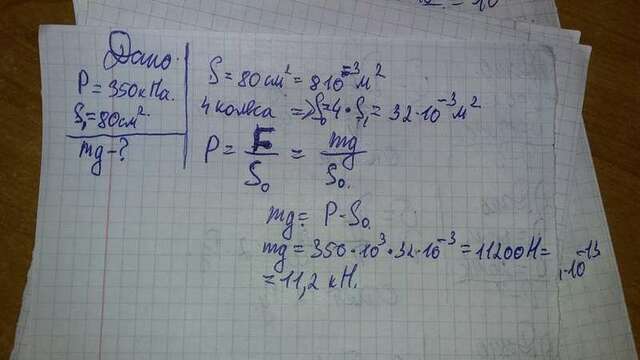 Дано:
P = 350кПа.
S₁ = 80см².
mg - ?
S = 80см² = 8·10⁻³ м²
4 колеса => S₀ = 4 · S₁ = 32·10⁻³ м²
P = F/S₀ = mg/S₀.
mg = P · S₀.
mg = 350·10³·32·10⁻³ = 11200Н =
= 11,2 кН.
·10⁻¹³